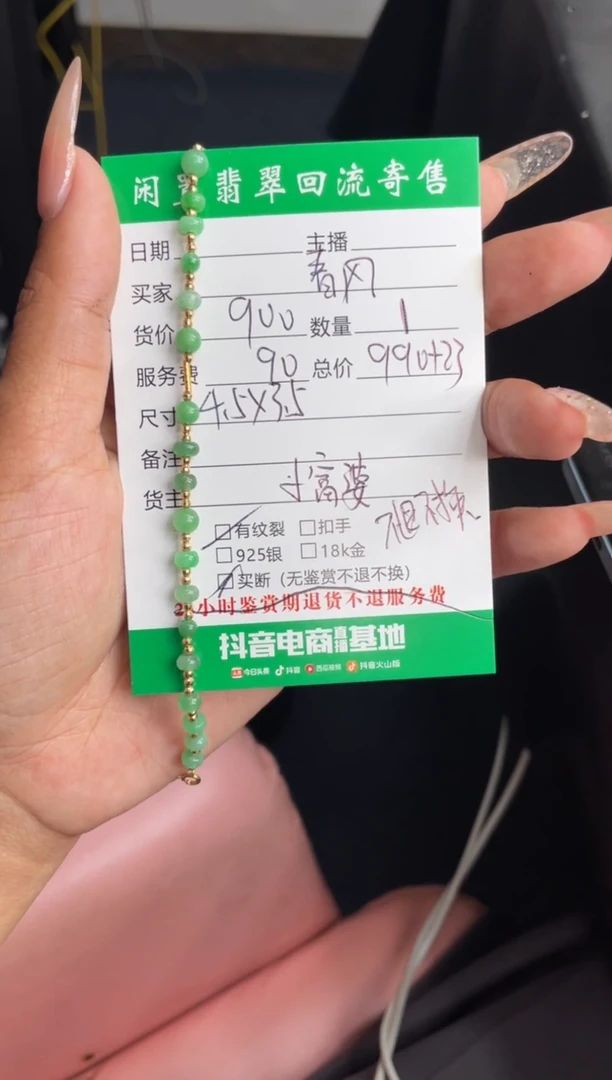 闲置翡翠回流寄售
日期 主播
买家 春风
货价 900 数量 1
服务费 90 总价 990+23
尺寸 4.5X3.5
备注
货主 小富婆
有纹裂 扣手 不退不换
925银 18k金
买断 (无鉴赏不退不换)
小时鉴赏期退货不退服务费
抖音电商直播基地
今日头条 抖音 西瓜视频 抖音火山版